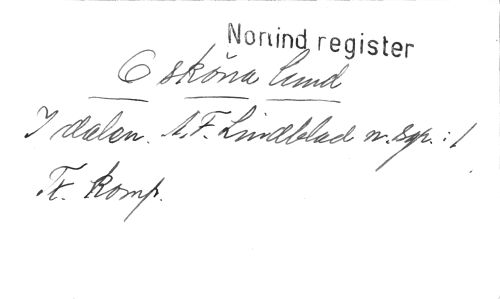 Norrind register
O sköna lund
I dalen. A.F. Lindblad m. Sgr. :/
Tx. Komp.